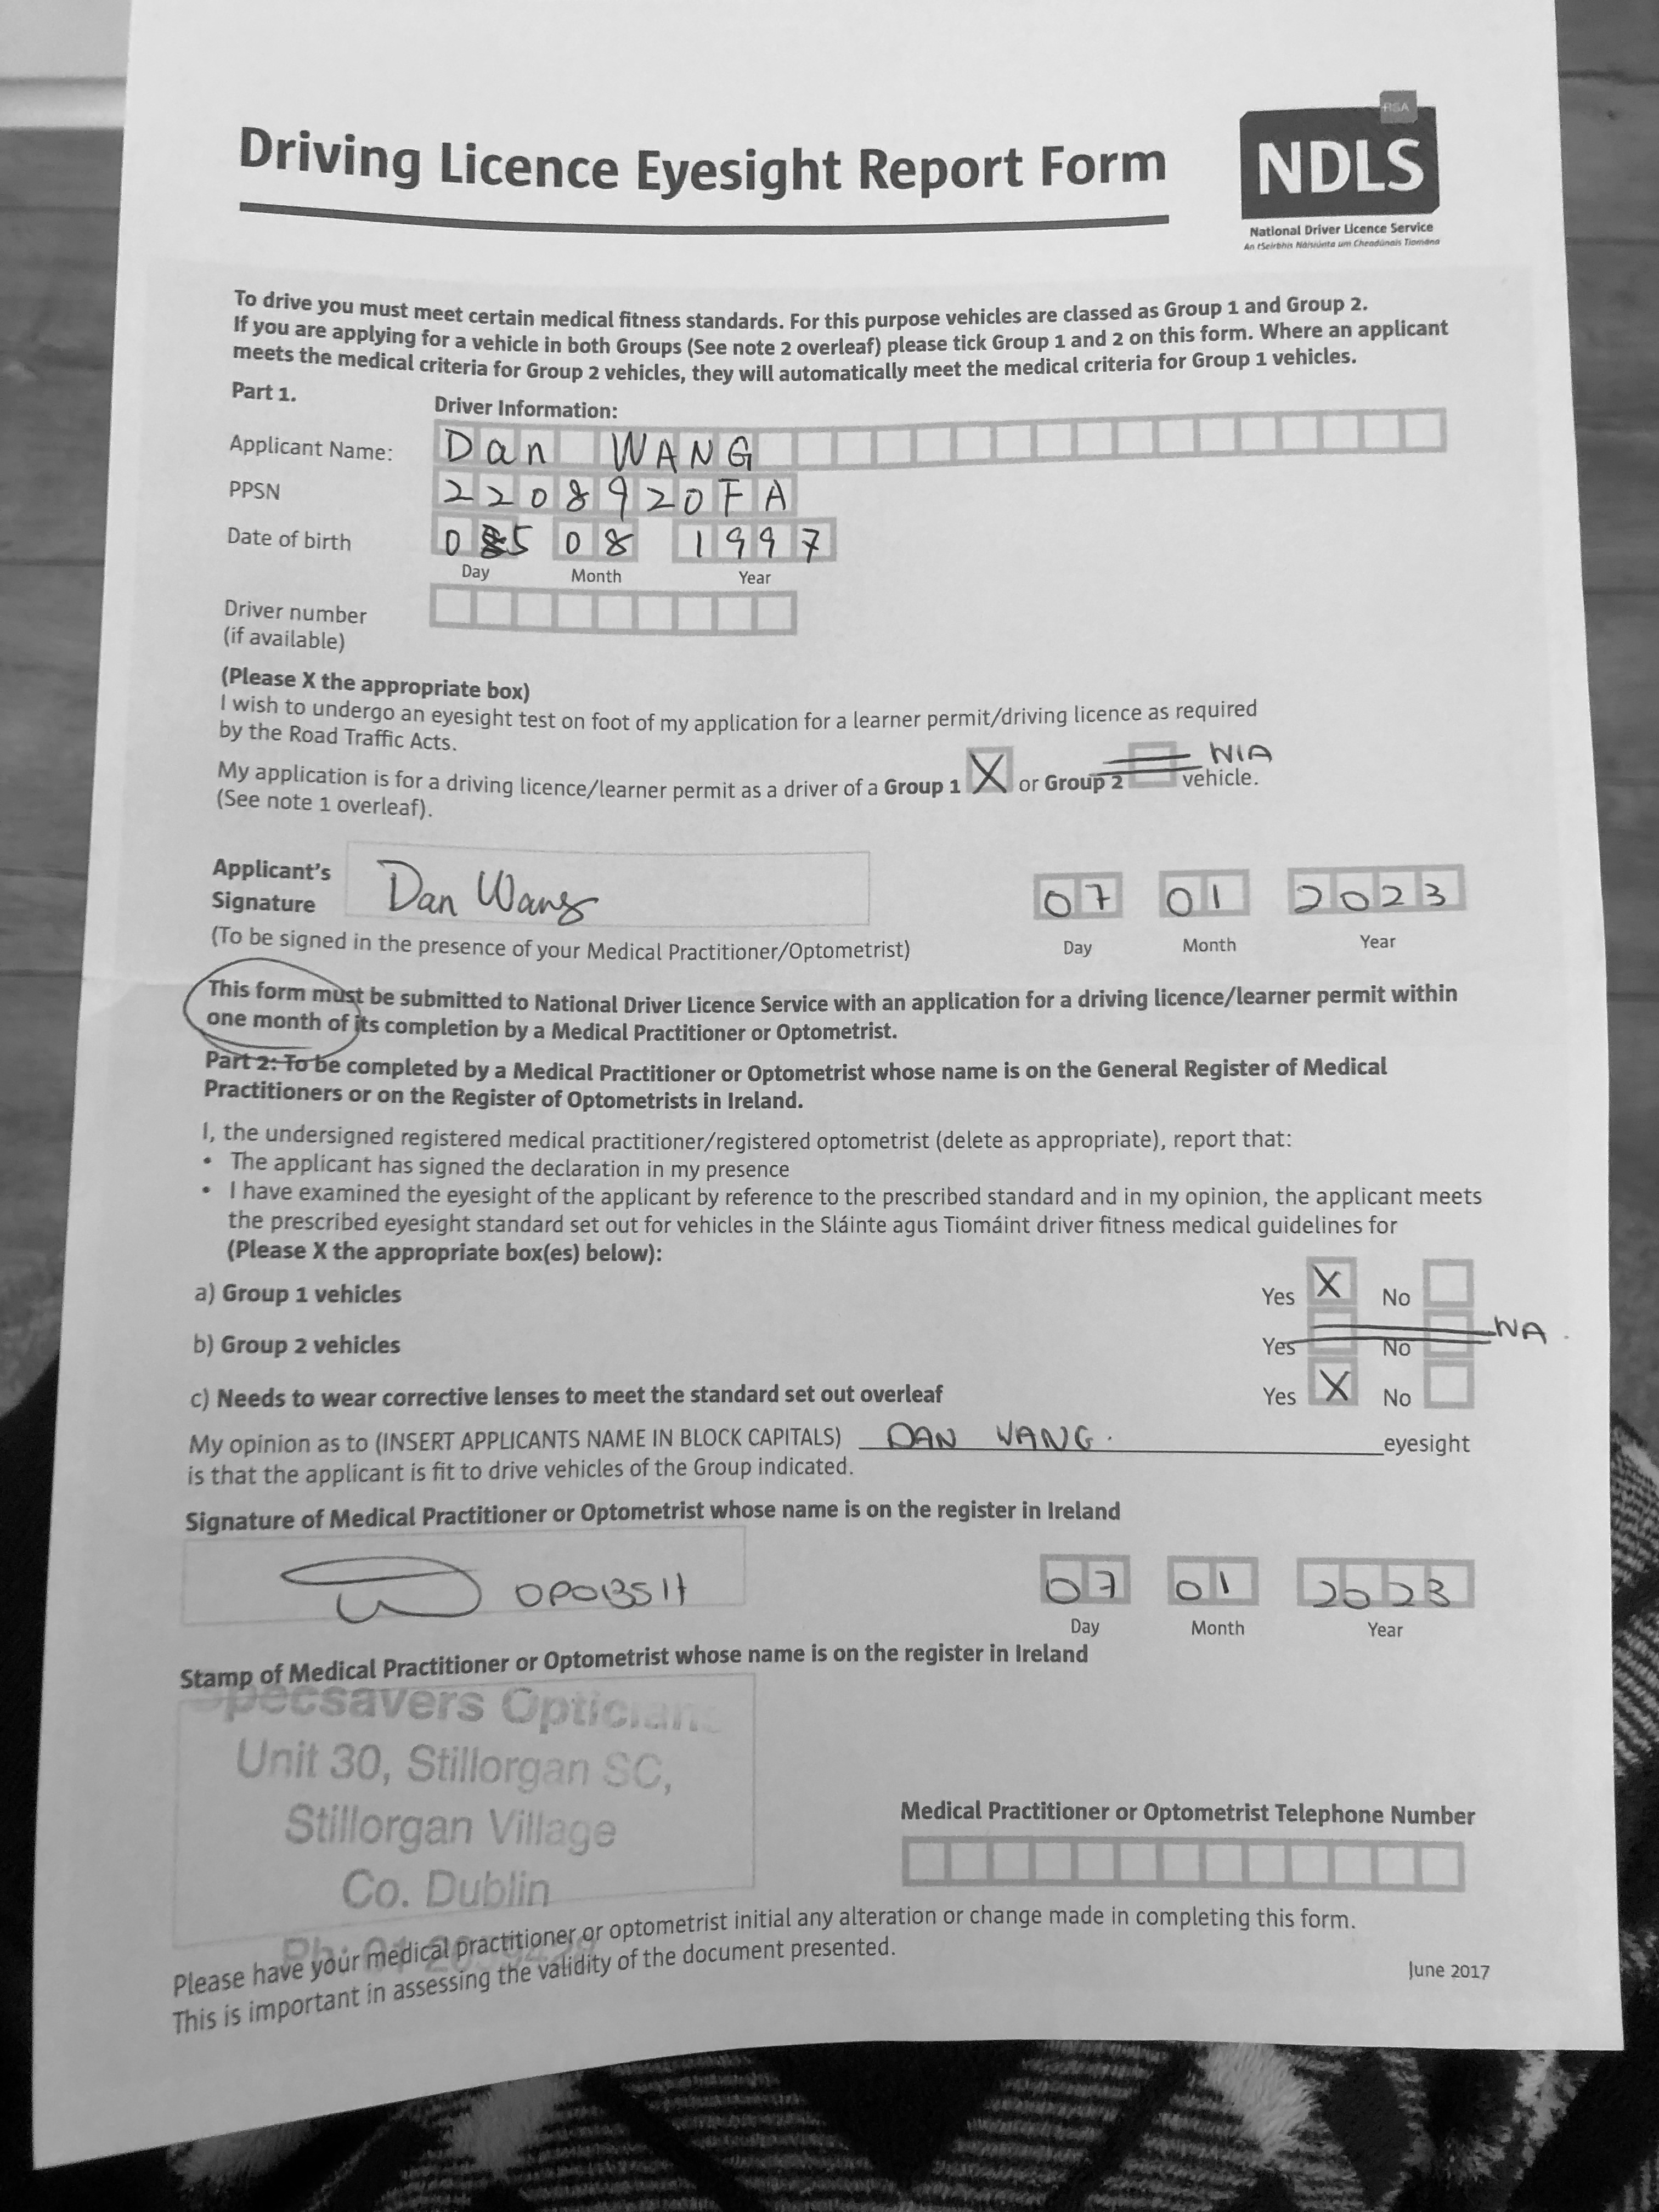 Driving Licence Eyesight Report Form
RSA
NDLS
National Driver Licence Service
An tSeirbhís Náisiúnta um Cheadúnais Tiomána
To drive you must meet certain medical fitness standards. For this purpose vehicles are classed as Group 1 and Group 2.
If you are applying for a vehicle in both Groups (See note 2 overleaf) please tick Group 1 and 2 on this form. Where an applicant
meets the medical criteria for Group 2 vehicles, they will automatically meet the medical criteria for Group 1 vehicles.
Part 1.
Driver Information:
Applicant Name: Dan WANG
PPSN 2208920FA
Date of birth 05 08 1997
Day Month Year
Driver number
(if available)
(Please X the appropriate box)
I wish to undergo an eyesight test on foot of my application for a learner permit/driving licence as required
by the Road Traffic Acts.
My application is for a driving licence/learner permit as a driver of a Group 1 X or Group 2 vehicle. N/A
(See note 1 overleaf).
Applicant's
Signature Dan Wang 07 01 2023
(To be signed in the presence of your Medical Practitioner/Optometrist) Day Month Year
This form must be submitted to National Driver Licence Service with an application for a driving licence/learner permit within
one month of its completion by a Medical Practitioner or Optometrist.
Part 2: To be completed by a Medical Practitioner or Optometrist whose name is on the General Register of Medical
Practitioners or on the Register of Optometrists in Ireland.
I, the undersigned registered medical practitioner/registered optometrist (delete as appropriate), report that:
• The applicant has signed the declaration in my presence
• I have examined the eyesight of the applicant by reference to the prescribed standard and in my opinion, the applicant meets
the prescribed eyesight standard set out for vehicles in the Sláinte agus Tiomáint driver fitness medical guidelines for
(Please X the appropriate box(es) below):
a) Group 1 vehicles Yes X No
b) Group 2 vehicles Yes No NA
c) Needs to wear corrective lenses to meet the standard set out overleaf Yes X No
My opinion as to (INSERT APPLICANTS NAME IN BLOCK CAPITALS) DAN WANG. eyesight
is that the applicant is fit to drive vehicles of the Group indicated.
Signature of Medical Practitioner or Optometrist whose name is on the register in Ireland
07 01 2023
Day Month Year
Stamp of Medical Practitioner or Optometrist whose name is on the register in Ireland
Specsavers Opticians
Unit 30, Stillorgan SC,
Stillorgan Village
Co. Dublin
Medical Practitioner or Optometrist Telephone Number
Please have your medical practitioner or optometrist initial any alteration or change made in completing this form.
This is important in assessing the validity of the document presented.
June 2017